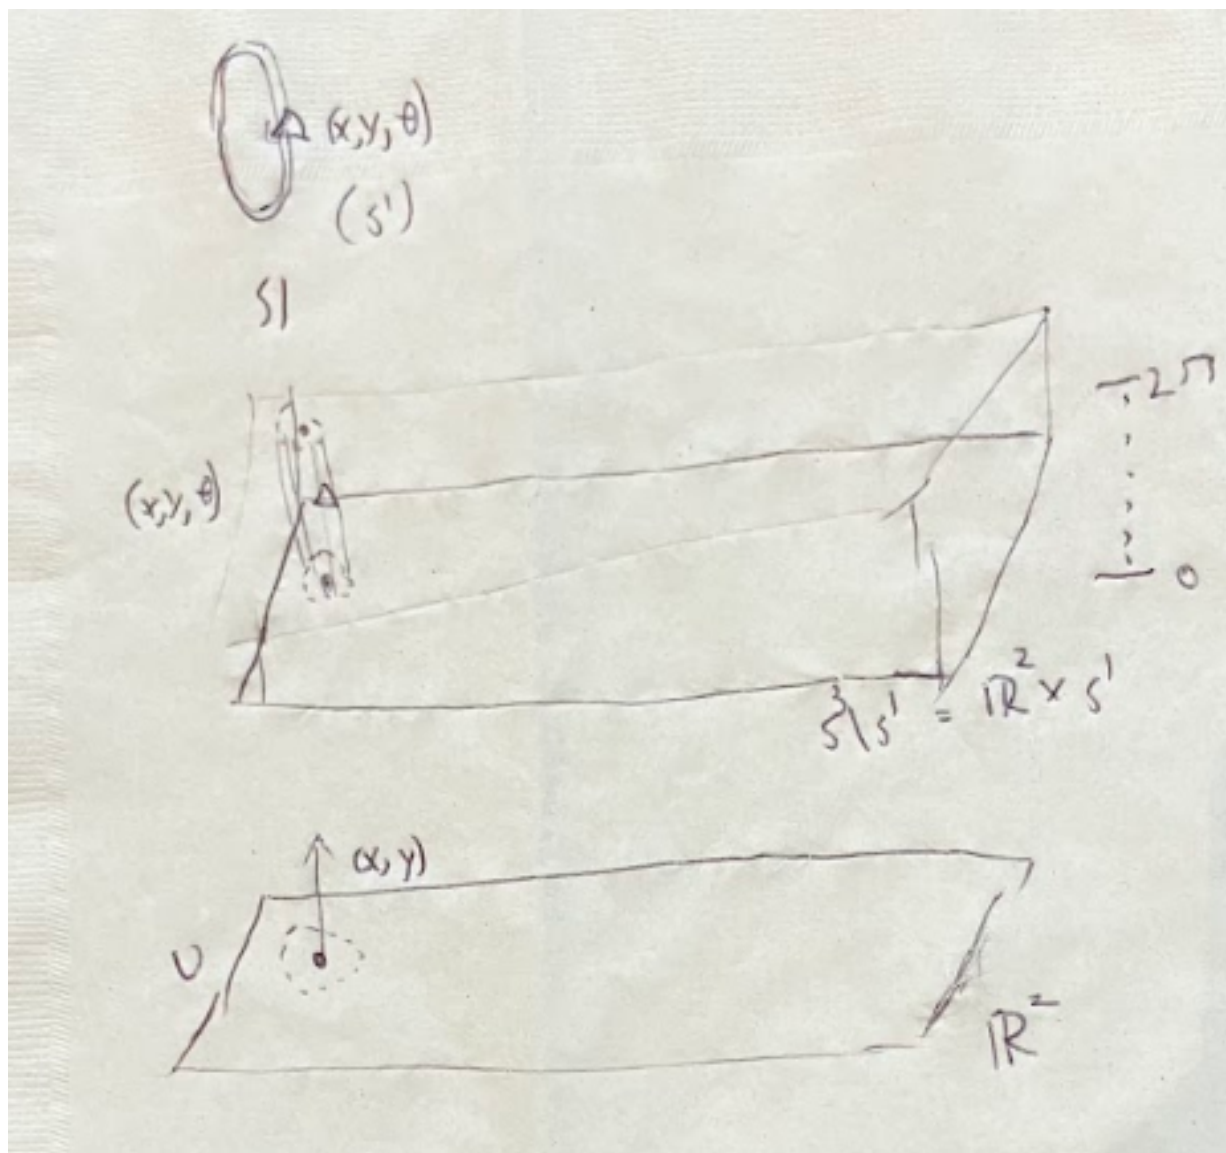 (x,y,θ)
(S¹)
S|
2π
(x,y,θ)
0
S³\S¹ = ℝ² × S¹
(x,y)
U
ℝ²